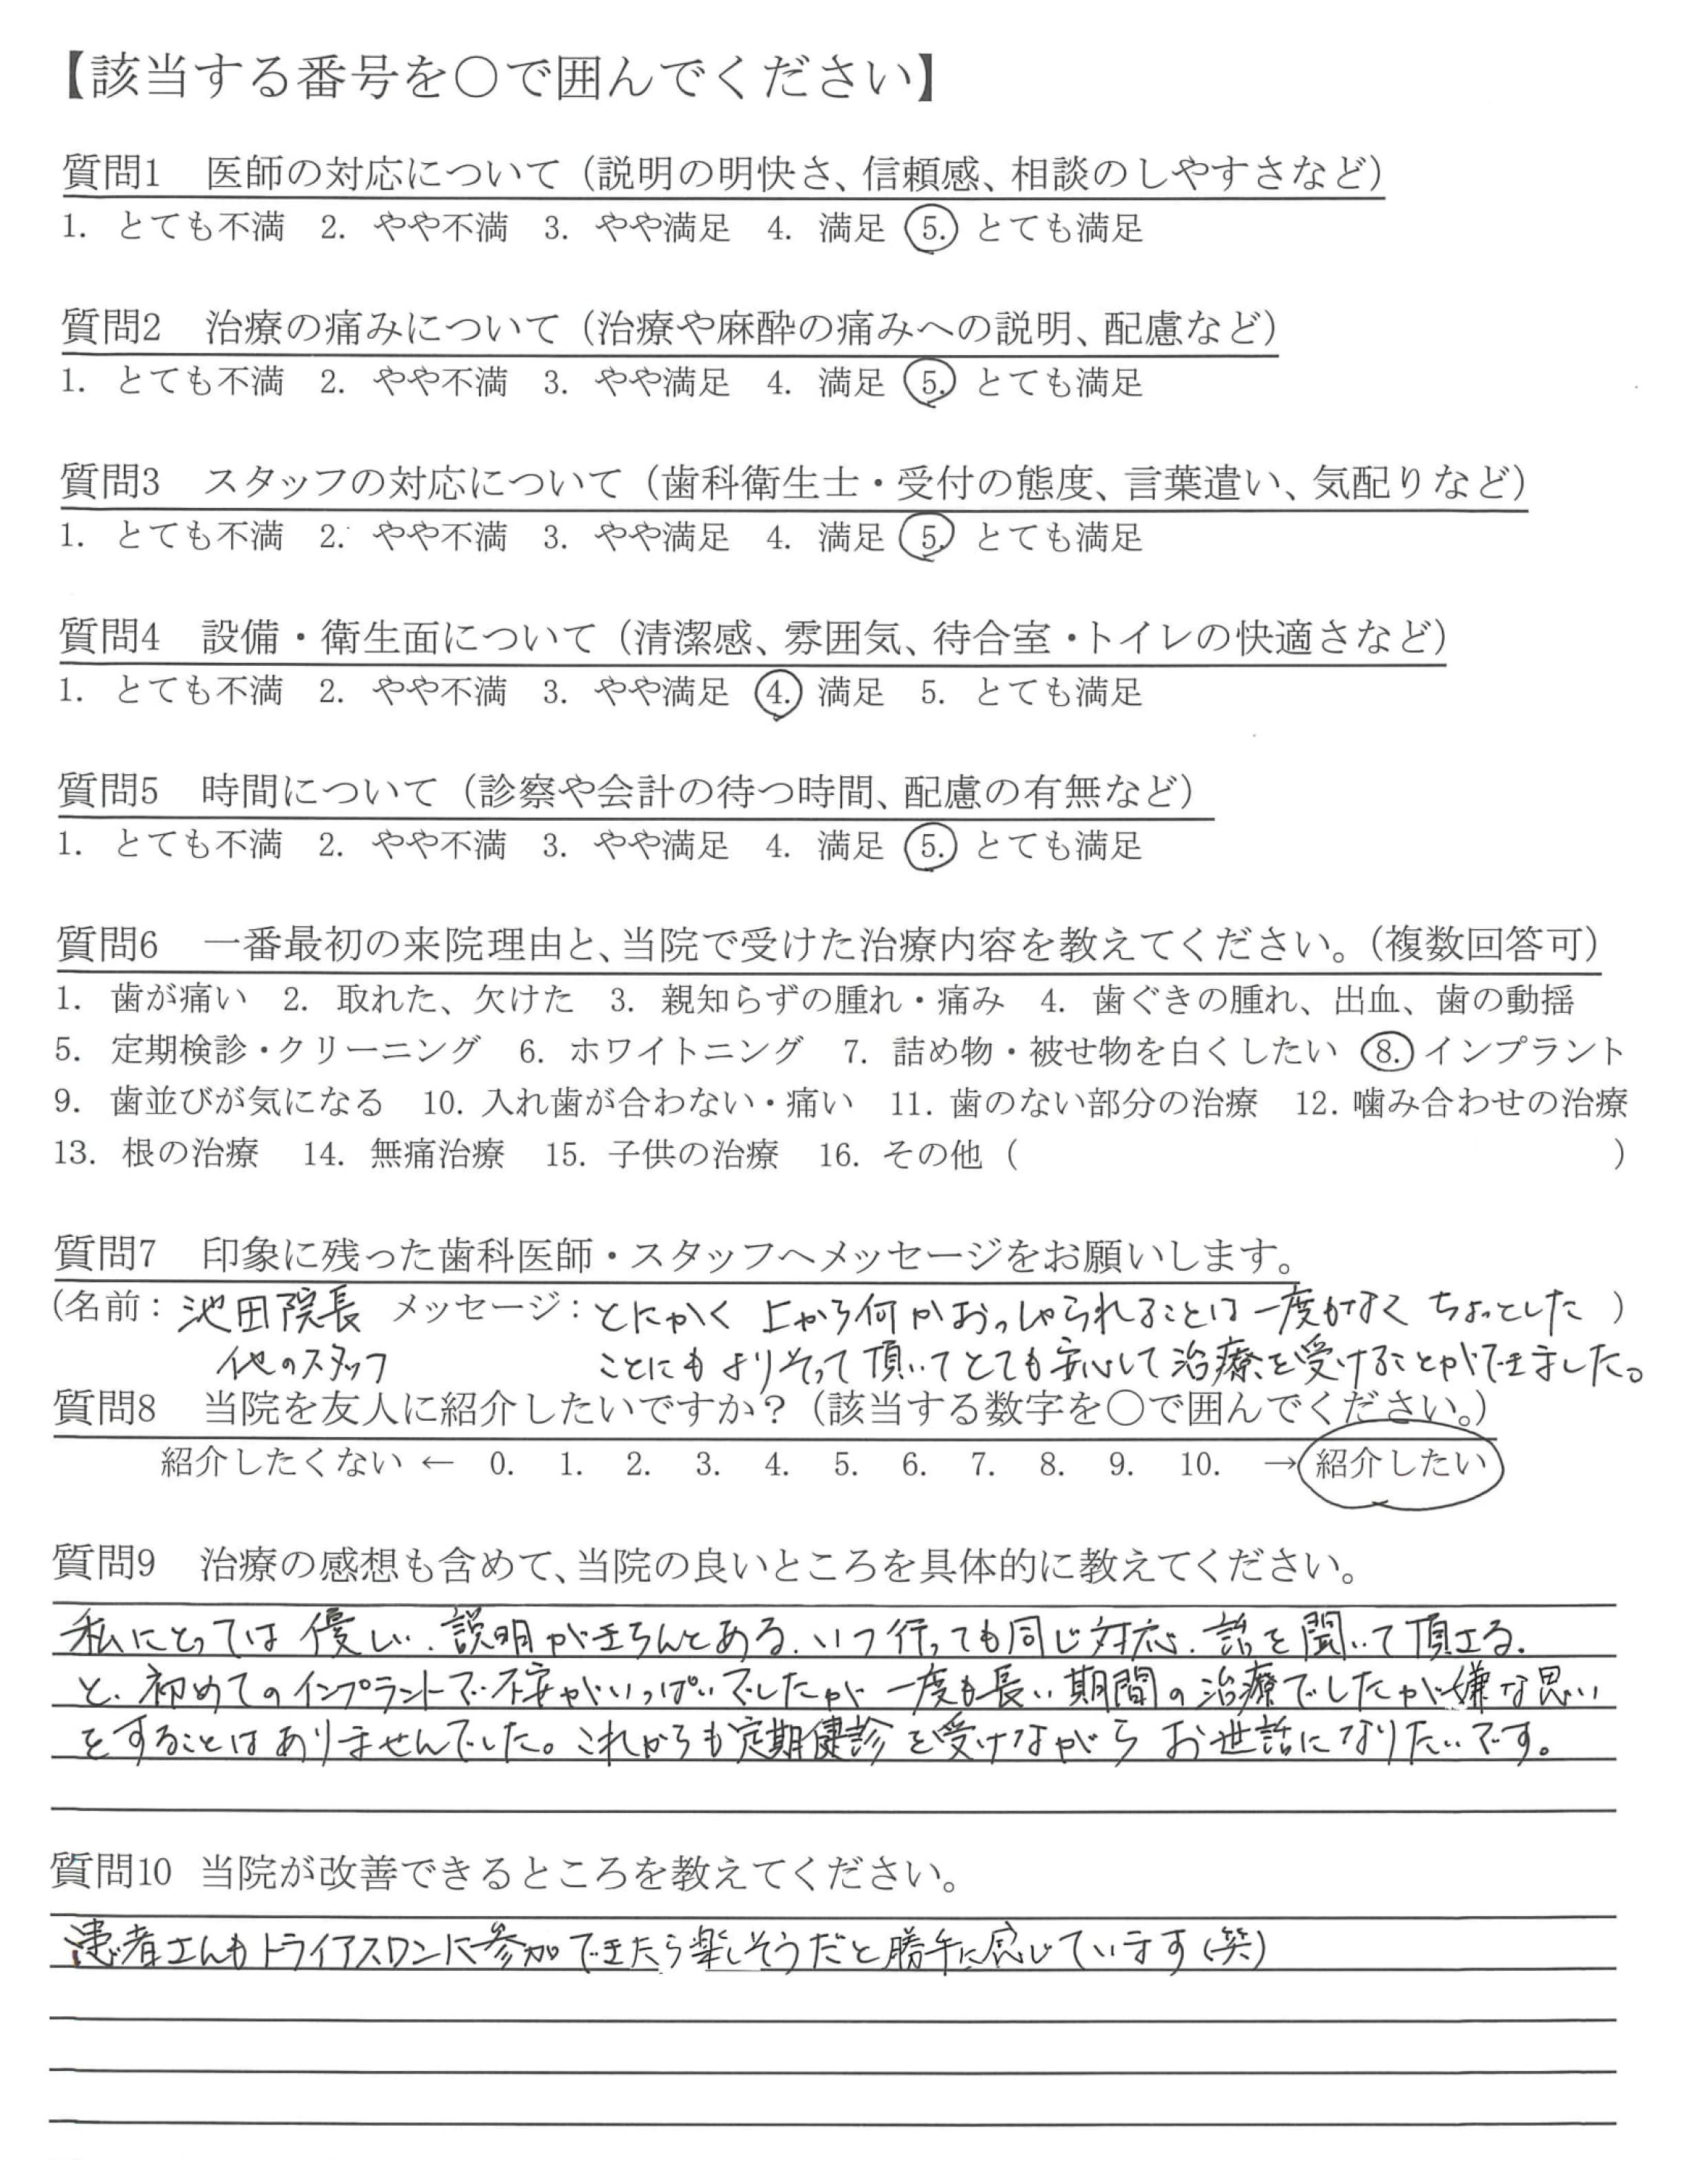 【該当する番号を〇で囲んでください】
質問1　医師の対応について（説明の明快さ、信頼感、相談のしやすさなど）
1. とても不満　2. やや不満　3. やや満足　4. 満足　5. とても満足
質問2　治療の痛みについて（治療や麻酔の痛みへの説明、配慮など）
1. とても不満　2. やや不満　3. やや満足　4. 満足　5. とても満足
質問3　スタッフの対応について（歯科衛生士・受付の態度、言葉遣い、気配りなど）
1. とても不満　2. やや不満　3. やや満足　4. 満足　5. とても満足
質問4　設備・衛生面について（清潔感、雰囲気、待合室・トイレの快適さなど）
1. とても不満　2. やや不満　3. やや満足　4. 満足　5. とても満足
質問5　時間について（診察や会計の待つ時間、配慮の有無など）
1. とても不満　2. やや不満　3. やや満足　4. 満足　5. とても満足
質問6　一番最初の来院理由と、当院で受けた治療内容を教えてください。（複数回答可）
1. 歯が痛い　2. 取れた、欠けた　3. 親知らずの腫れ・痛み　4. 歯ぐきの腫れ、出血、歯の動揺
5. 定期検診・クリーニング　6. ホワイトニング　7. 詰め物・被せ物を白くしたい　8. インプラント
9. 歯並びが気になる　10. 入れ歯が合わない・痛い　11. 歯のない部分の治療　12. 噛み合わせの治療
13. 根の治療　14. 無痛治療　15. 子供の治療　16. その他（　　　）
質問7　印象に残った歯科医師・スタッフへメッセージをお願いします。
（名前：池田院長　メッセージ：とにかく 上から何かおっしゃられることは一度がなく ちょっとした ）
他のスタッフ　ことにもよりそって頂いてとても安心して治療を受けることができました。
質問8　当院を友人に紹介したいですか？（該当する数字を〇で囲んでください。）
紹介したくない ← 0. 1. 2. 3. 4. 5. 6. 7. 8. 9. 10. → 紹介したい
質問9　治療の感想も含めて、当院の良いところを具体的に教えてください。
私にとっては 優しい、説明がきちんとある、いつ行っても同じ対応、話を聞いて頂ける、
と、初めてのインプラントで不安がいっぱいでしたが 一度も長い期間の治療でしたが嫌な思い
をすることはありませんでした。これからも定期健診を受けながら お世話になりたいです。
質問10　当院が改善できるところを教えてください。
患者さんもトライアスロンに参加できたら楽しそうだと勝手に感じています(笑)